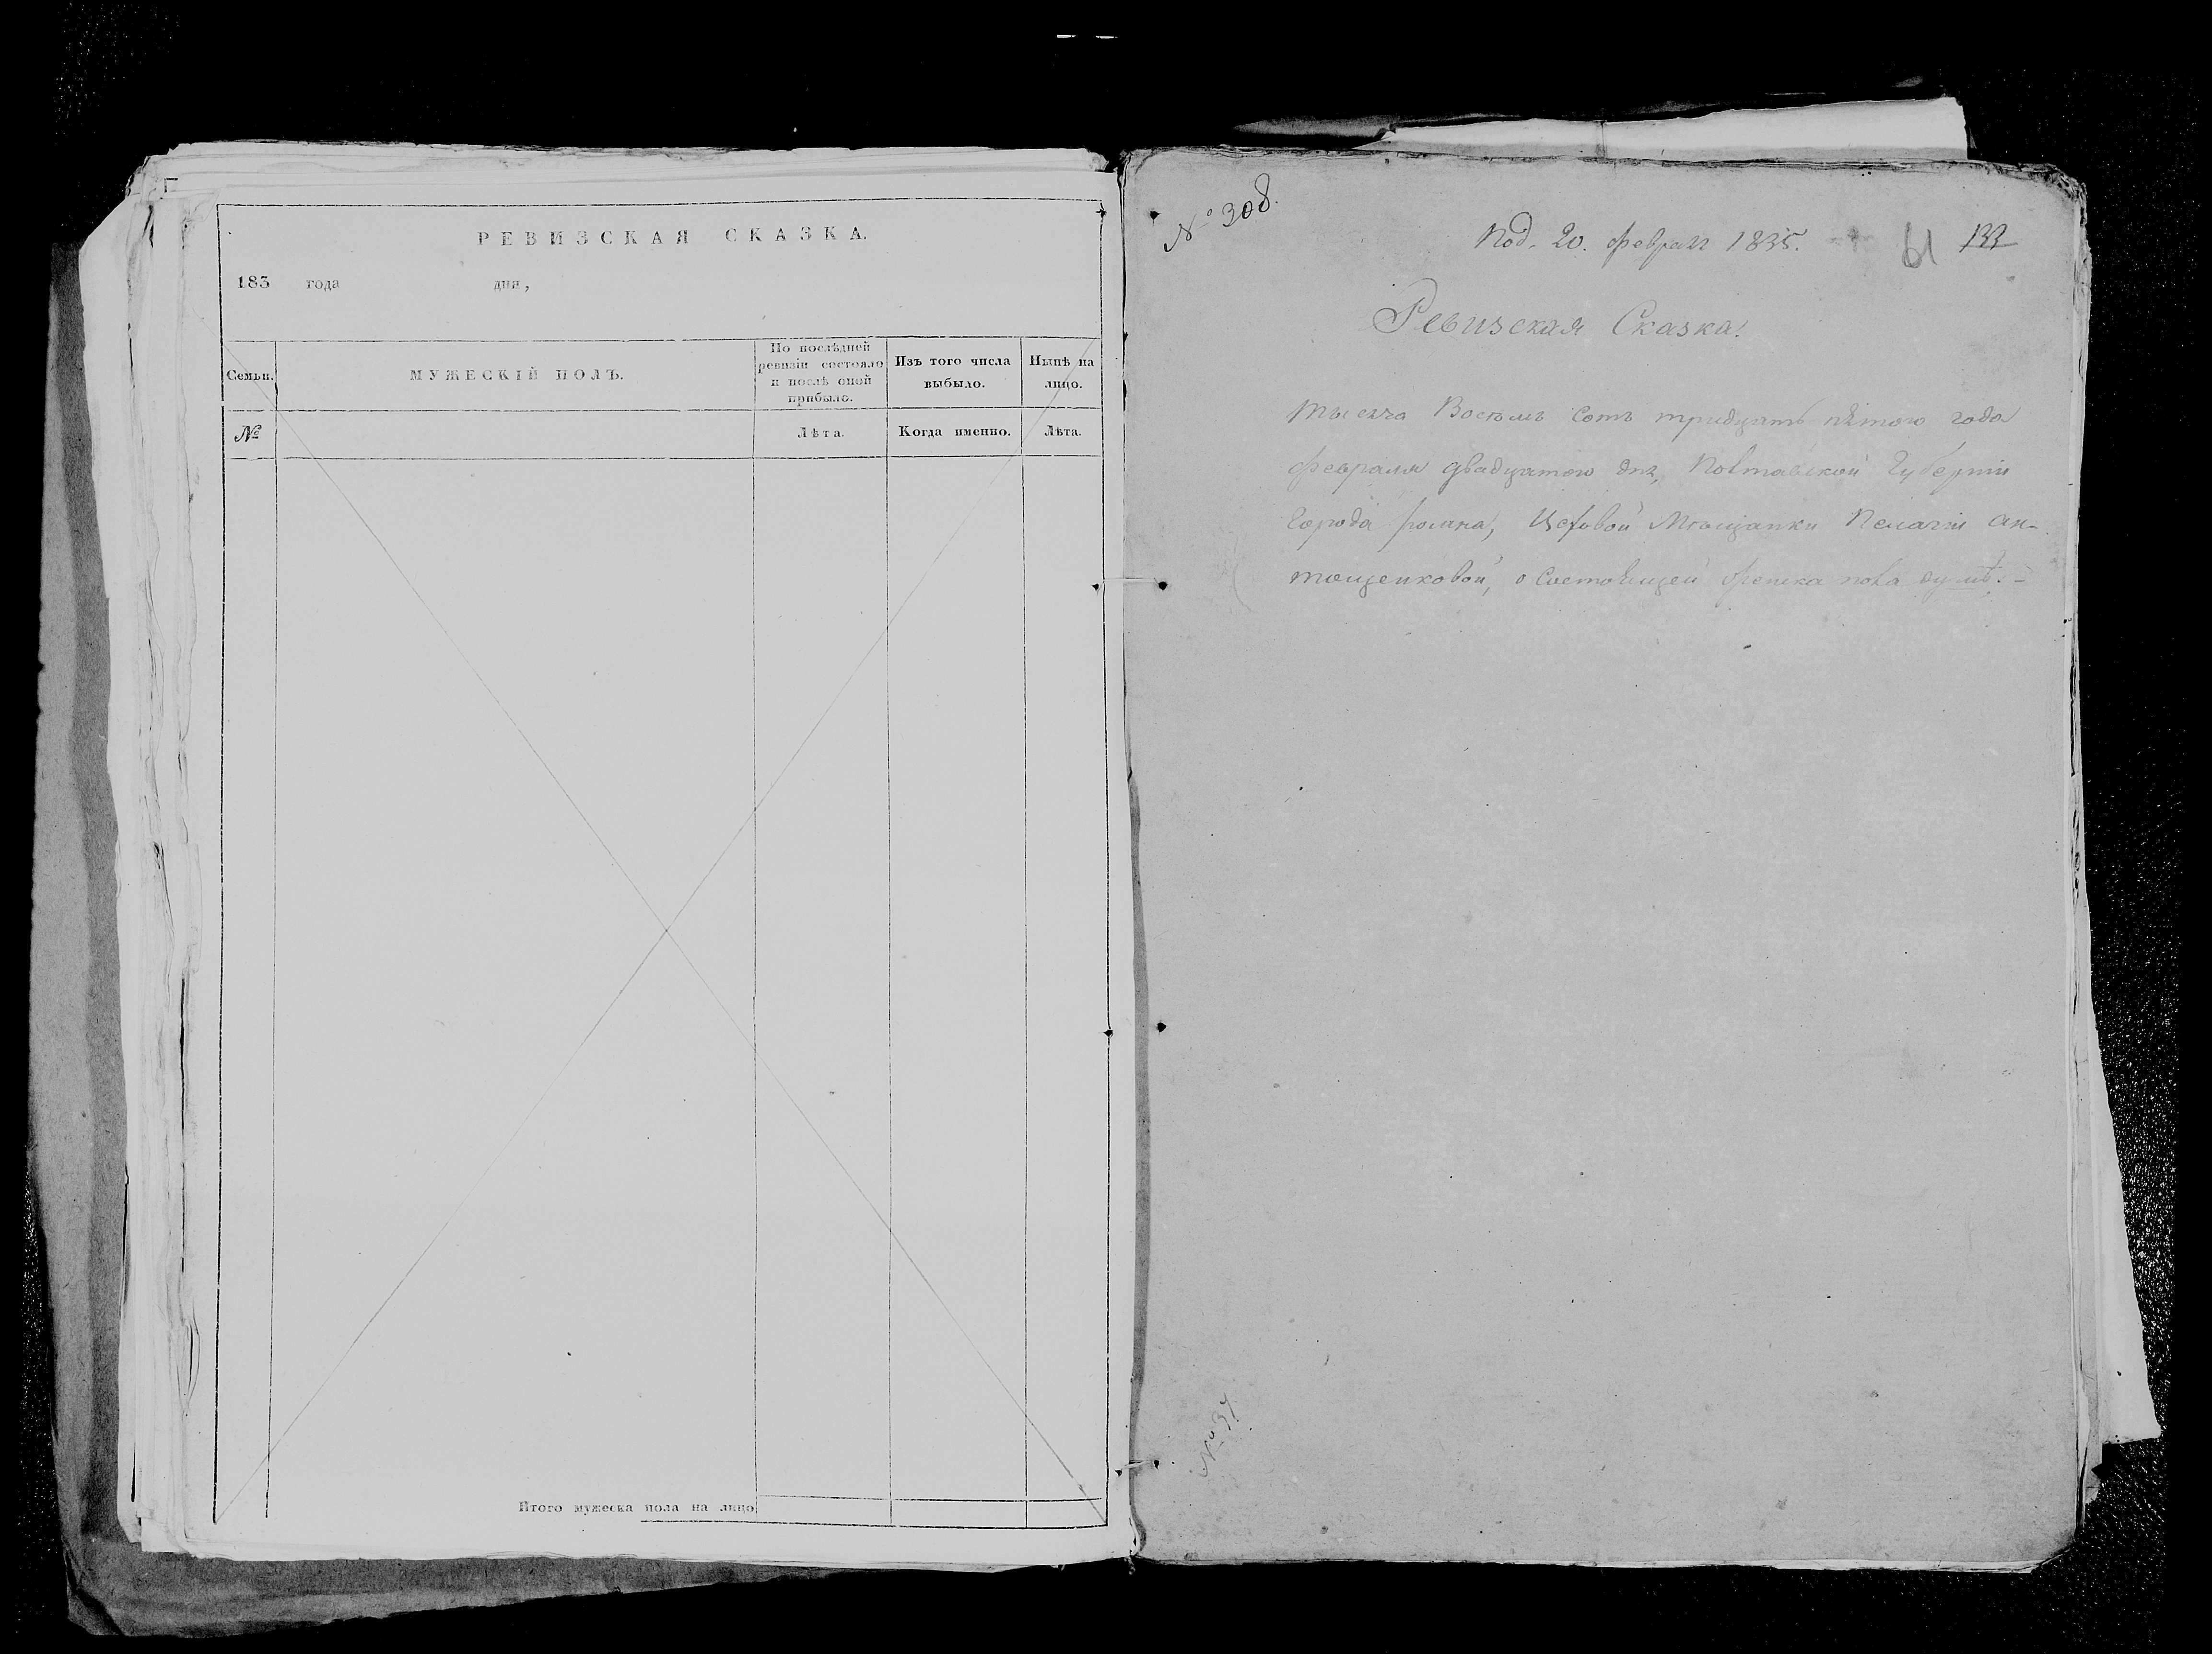 РЕВИЗСКАЯ СКАЗКА.
183 года дня,
Семьи.
МУЖЕСКІЙ ПОЛЪ.
По послѣдней
ревизіи состояло
и послѣ оной
прибыло.
Изъ того числа
выбыло.
Нынѣ на
лицо.
№
Лѣта.
Когда именно.
Лѣта.
Итого мужеска пола на лицо
№ 308.
Под. 20. февраля 1835.
61 133
Ревизская Сказка.
тысяча Восемь сотъ тридцать пятого года
февраля двадцатого дня, Полтавской Губерніи
Города Ромна, Цеховой Мѣщанки Пелагіи Ан-
тощенковой, о Состоящей женска пола
№ 37.